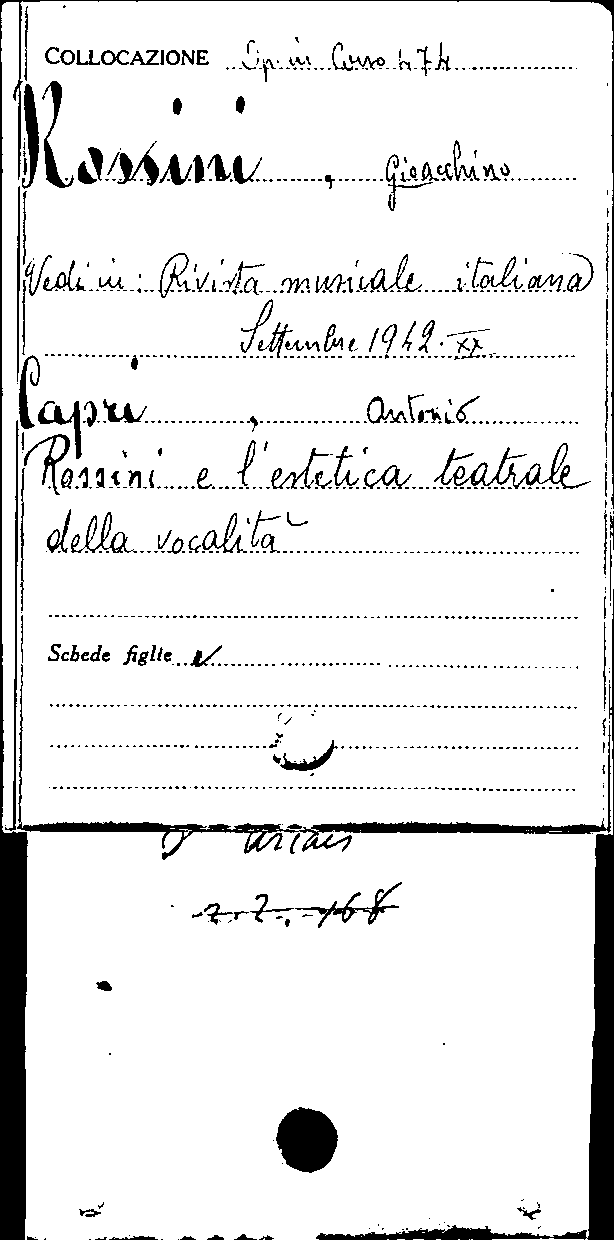 COLLOCAZIONE Op. in Corso 474
Rossini, Gioacchino
Vedi in: Rivista musicale italiana
Settembre 1942.XX
Capri, Antonio
Rossini e l'estetica teatrale
della vocalità
Schede figlie
2.2.168